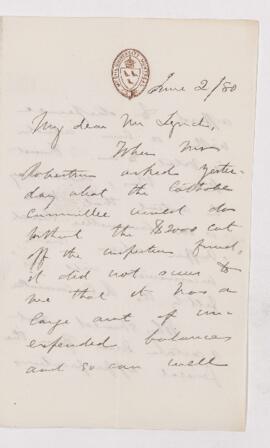 June 2/80
My dear Mr Lynch,
When Mr
Robertson asked yester-
day what the Catholic
Committee would do
without the $2000 cut
off the inspection fund,
it did not seem to
me that it has a
large amt of un-
expended balances
and so can well